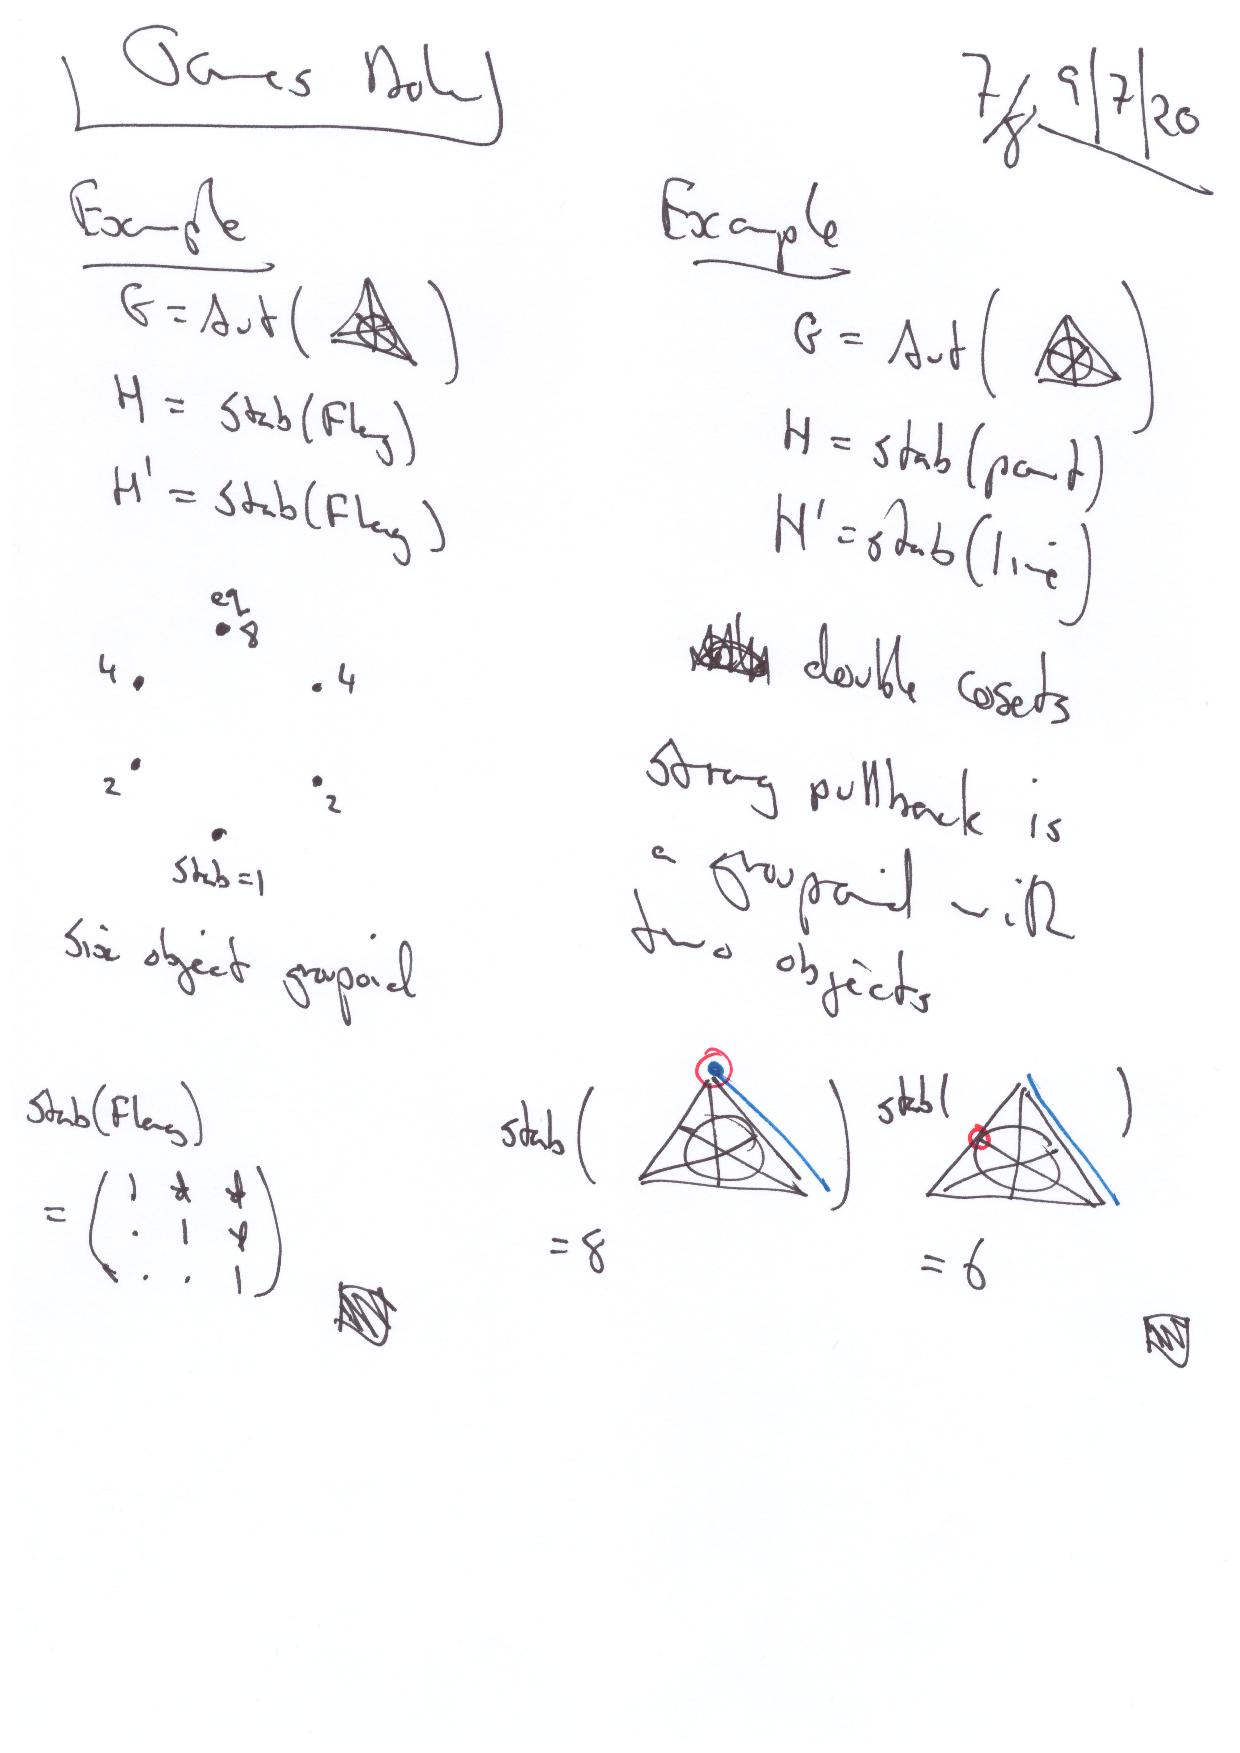 James Dolan
7/8 9/7/20
Example
G = Aut( )
H = Stab(Flag)
H' = Stab(Flag)
eq
8
4
4
2
2
stab=1
six object groupoid
Stab(Flag)
= ( 1 * *
. 1 *
. . 1 )
Example
G = Aut( )
H = stab(point)
H' = stab(line)
double cosets
strong pullback is
a groupoid with
two objects
stab( )
= 8
stab( )
= 6